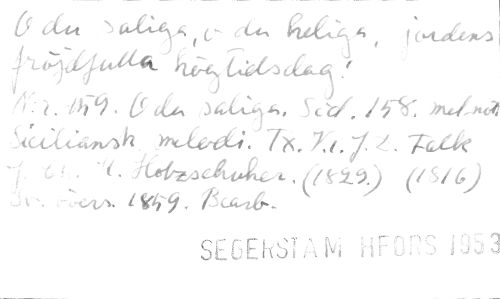 O du saliga, o du heliga, jordens
fröjdfulla högtidsdag!
N:r. 159. O du saliga. Sid. 158. mel. not
Siciliansk melodi. Tx. V. 1. J. D. Falk
H. Holzschuher. (1829.) (1816)
Sv. övers. 1859. Bearb.
SEGERSTAM HFORS 1953